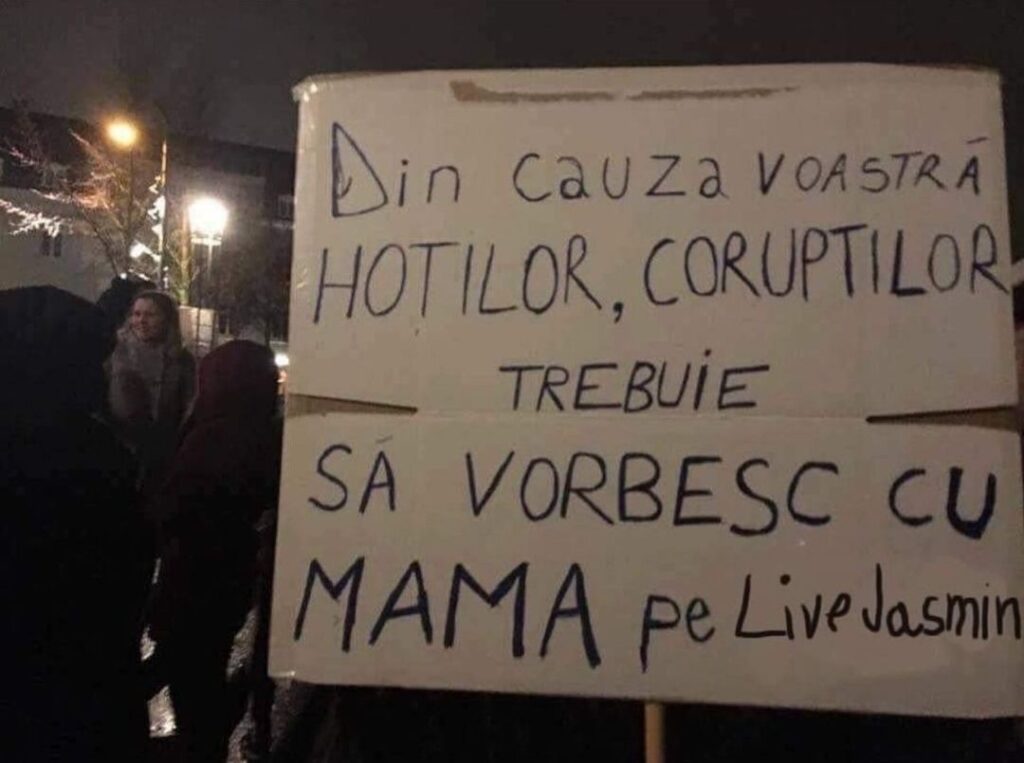 Din cauza VOASTRĂ
HOTILOR, CORUPTILOR
TREBUiE
SĂ VORBESC CU
MAMA pe LiveJasmin